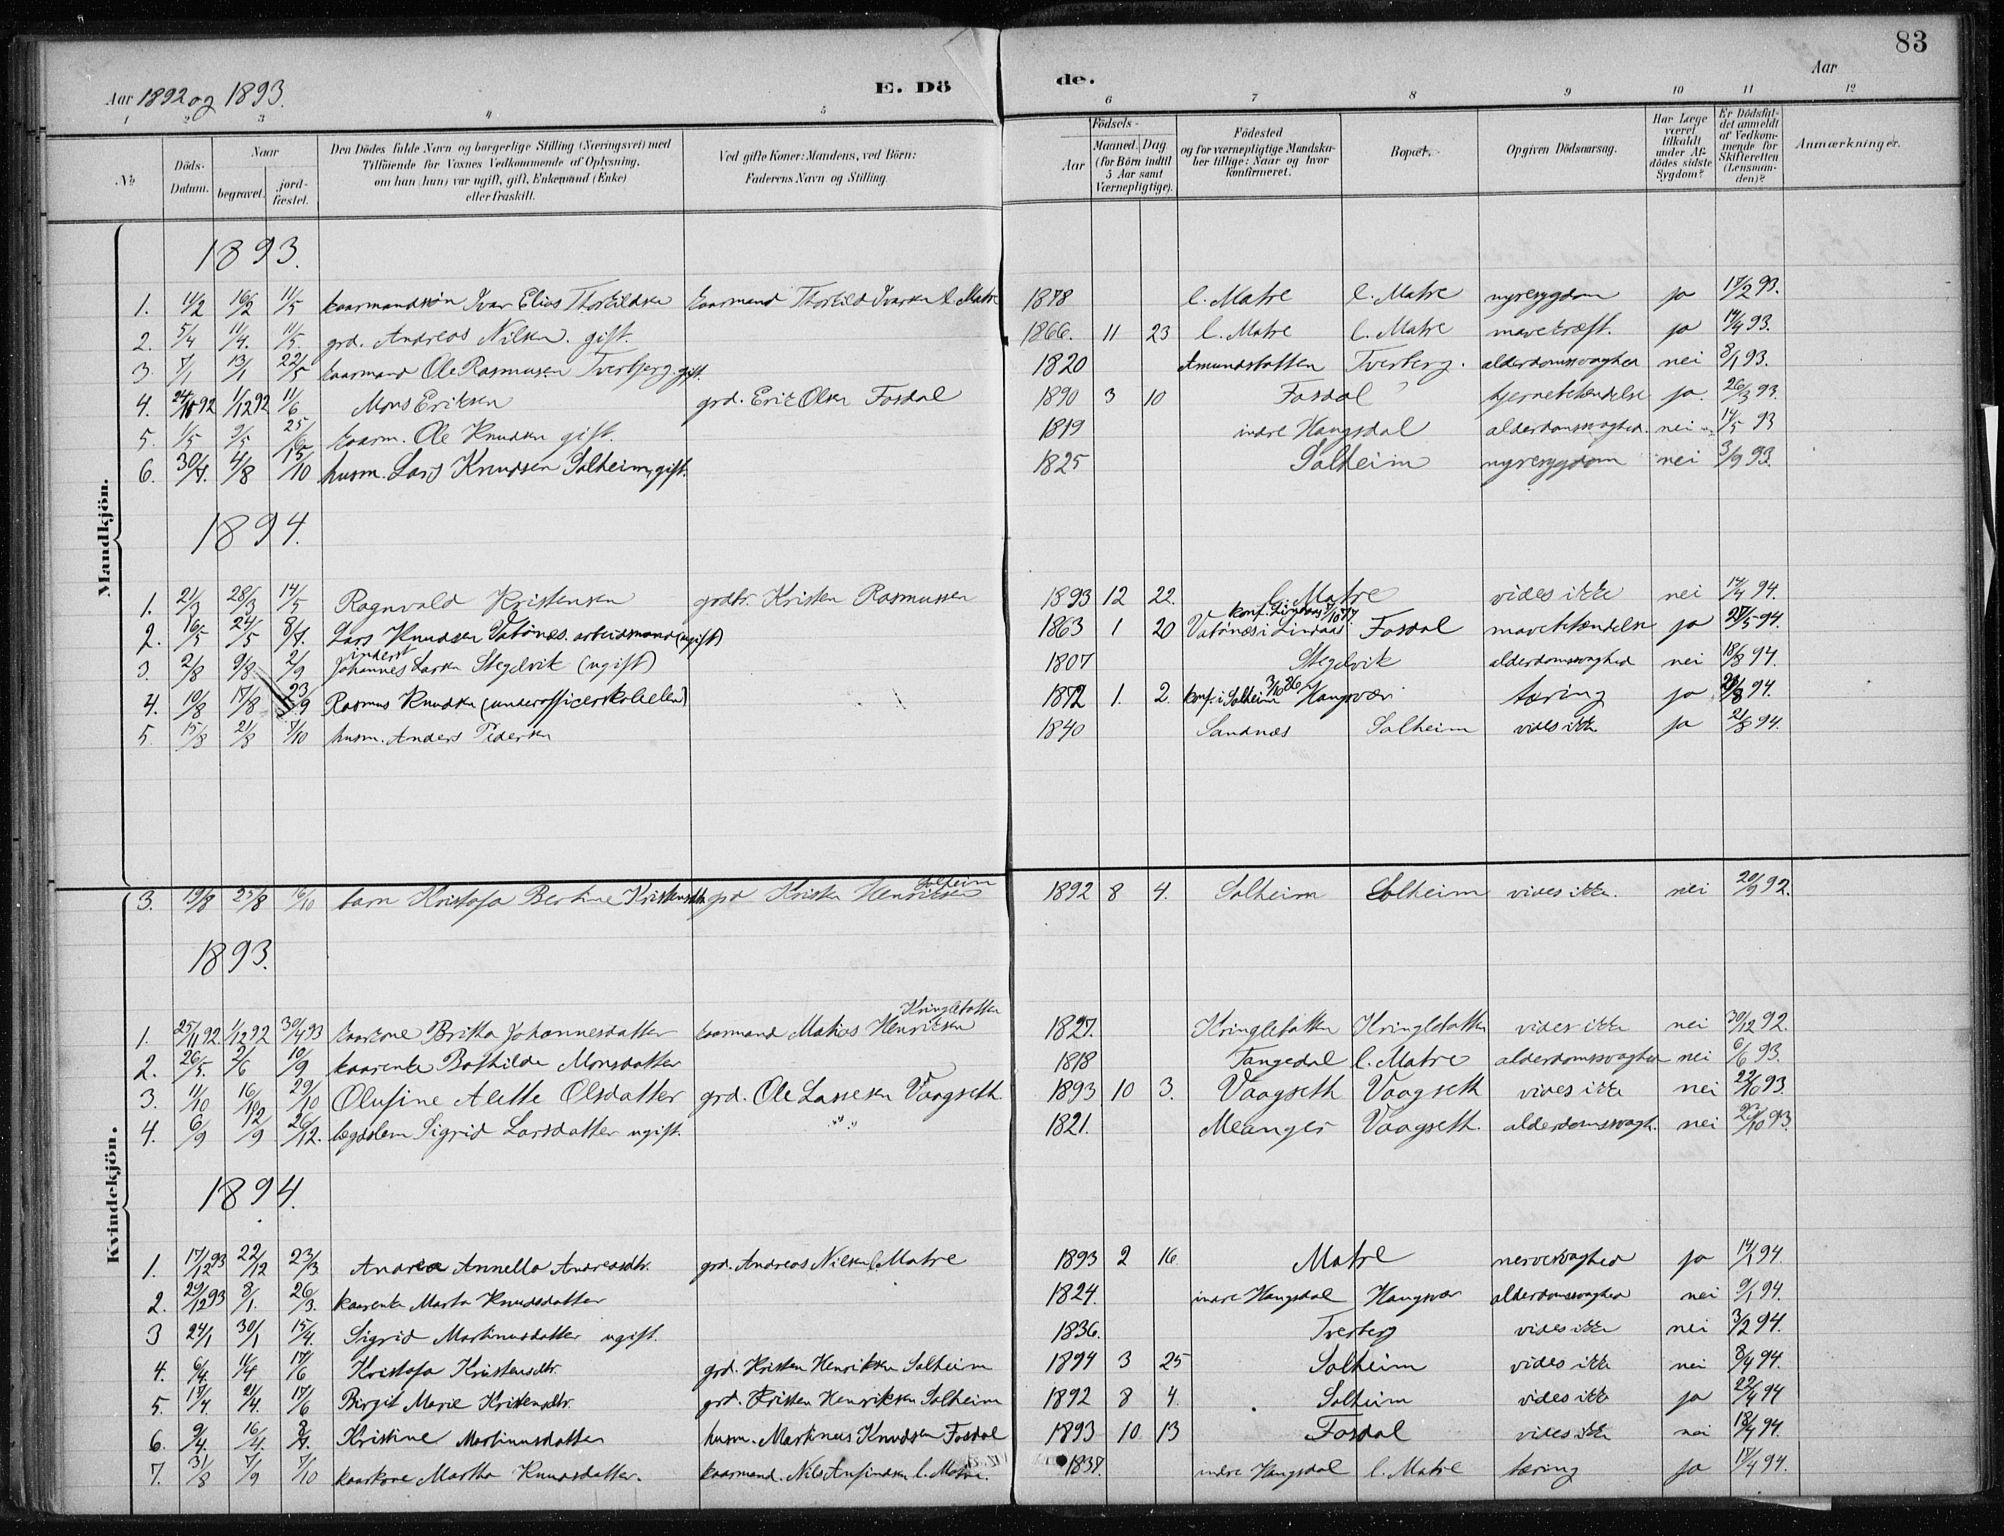 83
Aar 1892 og 1893.
E. Dö de.
Aar
1 2 3 4 5 6 7 8 9 10 11 12
№
Döds-Datum.
Naar
begravet.
jord-fæstet.
Den Dödes fulde Navn og borgerlige Stilling (Næringsvei) med Tilföiende for Voxnes Vedkommende af Oplysning, om han (hun) var ugift, gift, Enkemand (Enke) eller fraskilt.
Ved gifte Koner: Mandens, ved Börn: Faderens Navn og Stilling.
Födsels-
Aar
Maaned. Dag
(for Börn indtil 5 Aar samt Værnepligtige).
Födested og for værnepligtige Mandskaber tillige: Naar og hvor konfirmeret.
Bopæl.
Opgiven Dödsaarsag.
Har Læge været tilkaldt under Afdödes sidste Sygdom?
Er Dödsfaldet anmeldt af Vedkommende for Skifteretten (Lensmanden)?
Anmærkninger.
Mandkjön.
1893.
1. 11/2 16/2 11/5 kaarmandssøn Ivar Elias Thorkildsen kaarmand Thorkild Ivarsen l. Matre 1878 l. Matre l. Matre nyresygdom ja 17/2 93.
2. 5/4 11/4. 11/5. grd. Andreas Nilsen. gift. 1866. 11 23 l. Matre l. Matre mavekræft. ja 14/4 93.
3. 7/1 13/1 22/5 kaarmand Ole Rasmussen Tverberg. gift. 1820 Amundstatten Tverberg. alderdomssvaghed nei 8/1 93.
4. 24/11 92 1/12 92 11/6 Mons Eriksen grd. Erik Olsen Fosdal 1890 3 10 Fosdal hjernebetændelse ja. 26/3 93.
5. 1/5 9/5 25/6 kaarm. Ole Knudsen gift. 1819 indre Haugsdal alderdomssvaghed. nei 14/5 93
6. 30/7. 4/8 15/10 husm. Lars Knudsen Solheim, gift. 1825 Solheim nyresygdom nei 3/9 93.
1894.
1. 21/3 28/3 14/5 Ragnvald Kristensen grdbr. Kristen Rasmussen 1893 12 22. l. Matre vides ikke nei 14/4 94.
2. 16/5 24/5 8/7. Lars Knudsen Vatnøes. arbeidsmand (ugift) 1863 1 20 Vatnøes i Lindaas konf. Lindaas Fosdal mavebetændelse ja 27/5 94.
3. 2/8 9/8 2/9 inderst Johannes Larsen Stegelvik (ugift) 1807 Stegelvik alderdomssvaghed nei 18/8 94.
4. 10/8 17/8 23/9 Rasmus Knudsen (underofficerskoleelev) 1872 1. 2. konf. i Solheim 3/10 86 Haugsvær tæring ja 20/8 94.
5. 15/8 21/8 7/10 husm. Anders Pedersen 1840 Sandnæs Solheim vides ikke ja 21/8 94.
Kvindekjön.
3. 19/8 25/8 16/10 barn Kristofa Bertine Kristensdtr. grd Kristen Henriksen Solheim 1892 8 4. Solheim Solheim vides ikke. nei 20/9 92.
1893.
1. 25/11 92 1/12 92 30/4 93 kaarkone Britha Johannesdatter kaarmand Matias Henriksen Kringlebotten 1827. Kringlebotten Kringlebotten vides ikke nei 30/12 92.
2. 26/5. 2/6 10/9 kaarenke Bothilde Monsdatter 1818 Tangedal l. Matre alderdomssvaghed nei 6/6 93.
3. 11/10 16/10 29/10 Olufine Alette Olsdatter grd. Ole Lassesen Vaagseth 1893 10 3. Vaagseth Vaagseth vides ikke nei 22/10 93.
4. 6/9 12/9 26/12. lægdslem Sigrid Larsdatter ugift. „ 1821. Meanger Vaagseth. alderdomssvagh. nei 22/10 93.
1894.
1. 17/12 93 22/12 23/3. Andrea Annella Andreasdtr. grd. Andreas Nilsen l. Matre 1893 2 16. Matre nervesvaghed ja 14/1 94.
2. 29/12 93 8/1. 26/3. kaarenke Marta Knudsdatter 1824. indre Haugsdal Haugsvær alderdomssvaghed nei 9/1 94.
3 24/1 30/1 15/4. Sigrid Martinusdatter ugift. 1836. Tverberg vides ikke nei 3/2 94.
4. 6/4. 11/4 17/6 Kristofa Kristensdtr. grd. Kristen Henriksen Solheim 1894 3 25 Solheim vides ikke nei 8/4 94.
5. 17/4. 21/4. 17/6 Birgit Marie Kristensdtr. grd. Kristen Henriksen Solheim 1892 8 4. Solheim vides ikke ja 22/4 94
6. 9/4. 16/4. 8/7. Kristine Martinusdatter husm. Martinus Knudsen Fosdal 1893 10 13 Fosdal vides ikke nei 18/4 94.
7. 31/8 7/9 7/10 kaarkone Martha Knudsdatter. kaarmand. Nils Anfindsen l. Matre. 1837. indre Haugsdal l. Matre tæring ja 17/9 94.